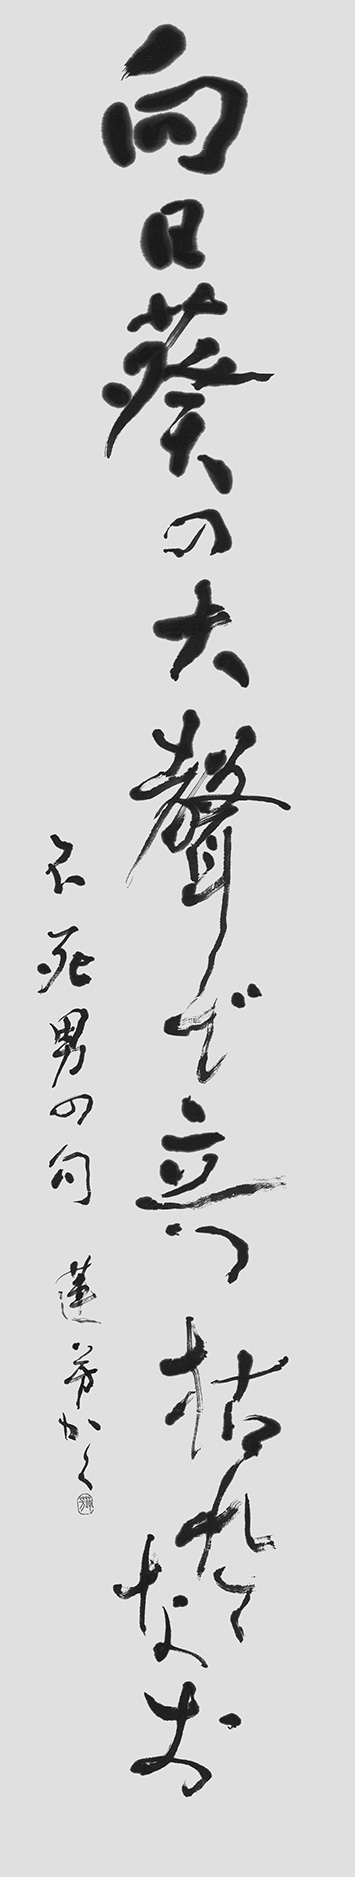 向日葵の大聲で立つ枯れてなお
不死男の句 蓮芳かく